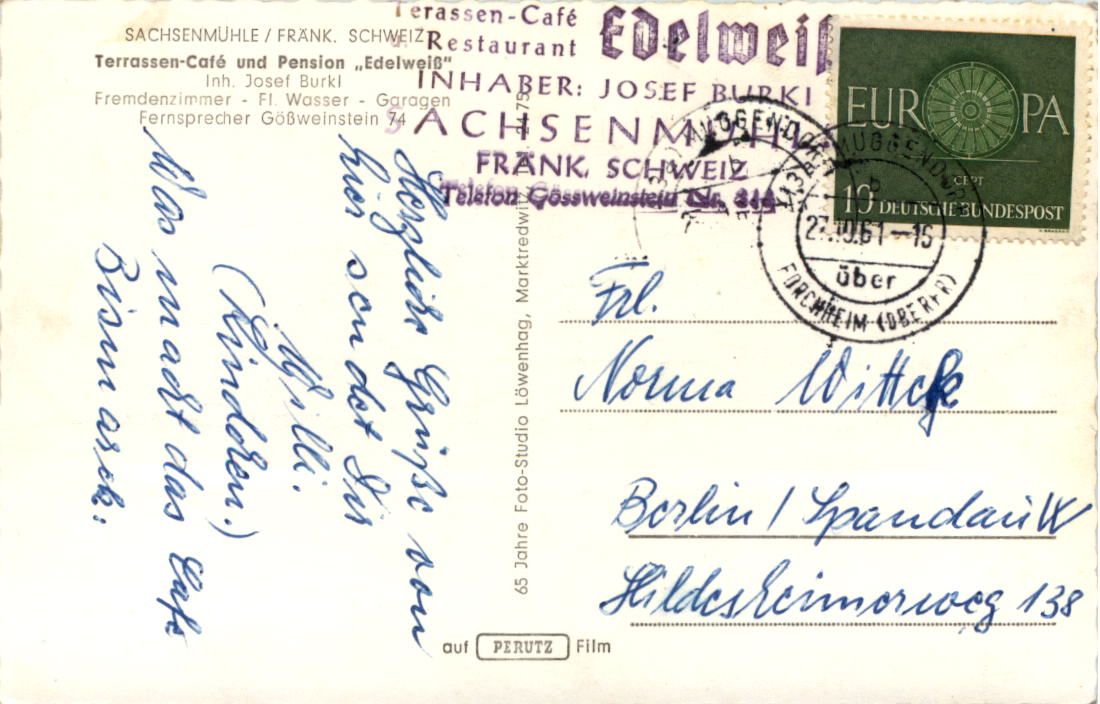 SACHSENMÜHLE / FRÄNK. SCHWEIZ
Terrassen-Café und Pension „Edelweiß"
Inh. Josef Burkl
Fremdenzimmer - Fl. Wasser - Garagen
Fernsprecher Gößweinstein 74
Terassen-Café
Restaurant
Edelweiß
INHABER: JOSEF BURKL
SACHSENMÜHLE
FRÄNK. SCHWEIZ
Telefon Gössweinstein Nr.
EUROPA
CEPT
10 DEUTSCHE BUNDESPOST
MUGGENDORF
b
27.10.61-15
über
FORCHHEIM (OBERFR)
Herzliche Grüße von
hier sendet Dir
Willi.
(Lindchen.)
Was macht das Café
Bismarck.
65 Jahre Foto-Studio Löwenhag, Marktredwitz
auf PERUTZ Film
Frl.
Norma Witteck
Berlin / Spandau W
Hildesheimerweg 138